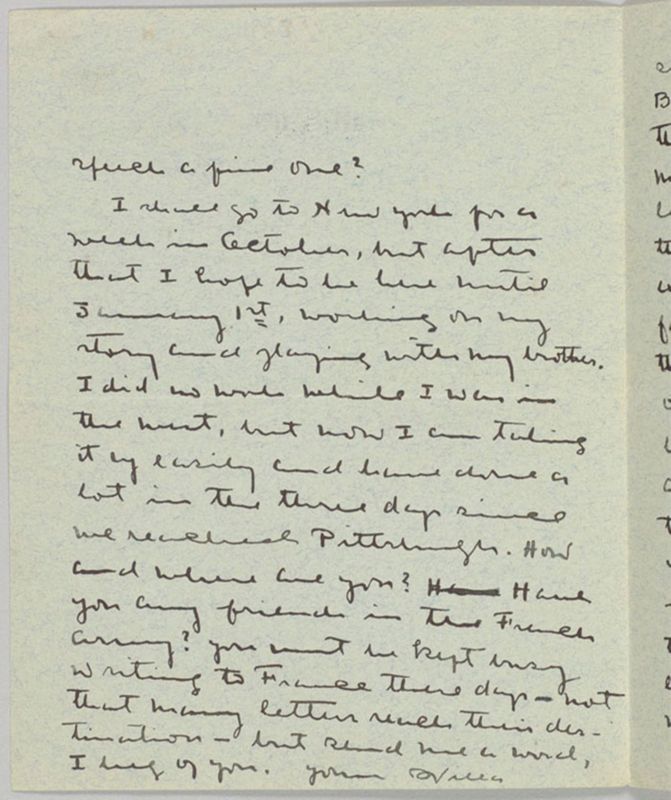 such a fine one?
I shall go to New York for a
week in October, but after
that I hope to be here until
January 1st, working on my
story and playing with my brother.
I did no work while I was in
the west, but now I am taking
it up easily and have done a
lot in the three days since
we reached Pittsburgh. How
and where are you? Have
you any friends in the French
army? You must be kept busy
writing to France these days — not
that many letters reach their des-
tination — but send me a word,
I beg of you. Yours Willa